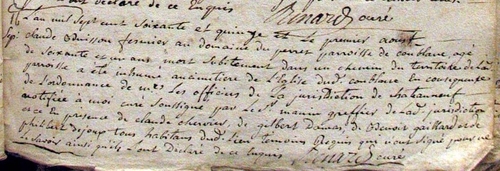 déclaré de ce Enquis Renard curé
L'an mil sept cent soixante et quinze et Le premier aoust
claude Buisson fermier au domaine du perret parroisse de Coublanc, agé
de soixante et un ans mort subitement dans un chemin du territoire de
paroisse a été inhumé au cimetiere de l'Eglise dud. Coublanc en consequence
de l'ordonnance de mrs Les officiers de la jurisdiction de Chateauneuf
notifiée a moi curé soussigné par greffier de lad. jurisdiction
et ce En presence de claude chevrier, de gilbert Domas, de Benoit gaillard et de
philibert dejoux tous habitans dud. Lieu temoins Requis qui n'ont signé pour ne
Le savoir ainsi qu'ils l'ont Declaré de ce Enquis Renard curé